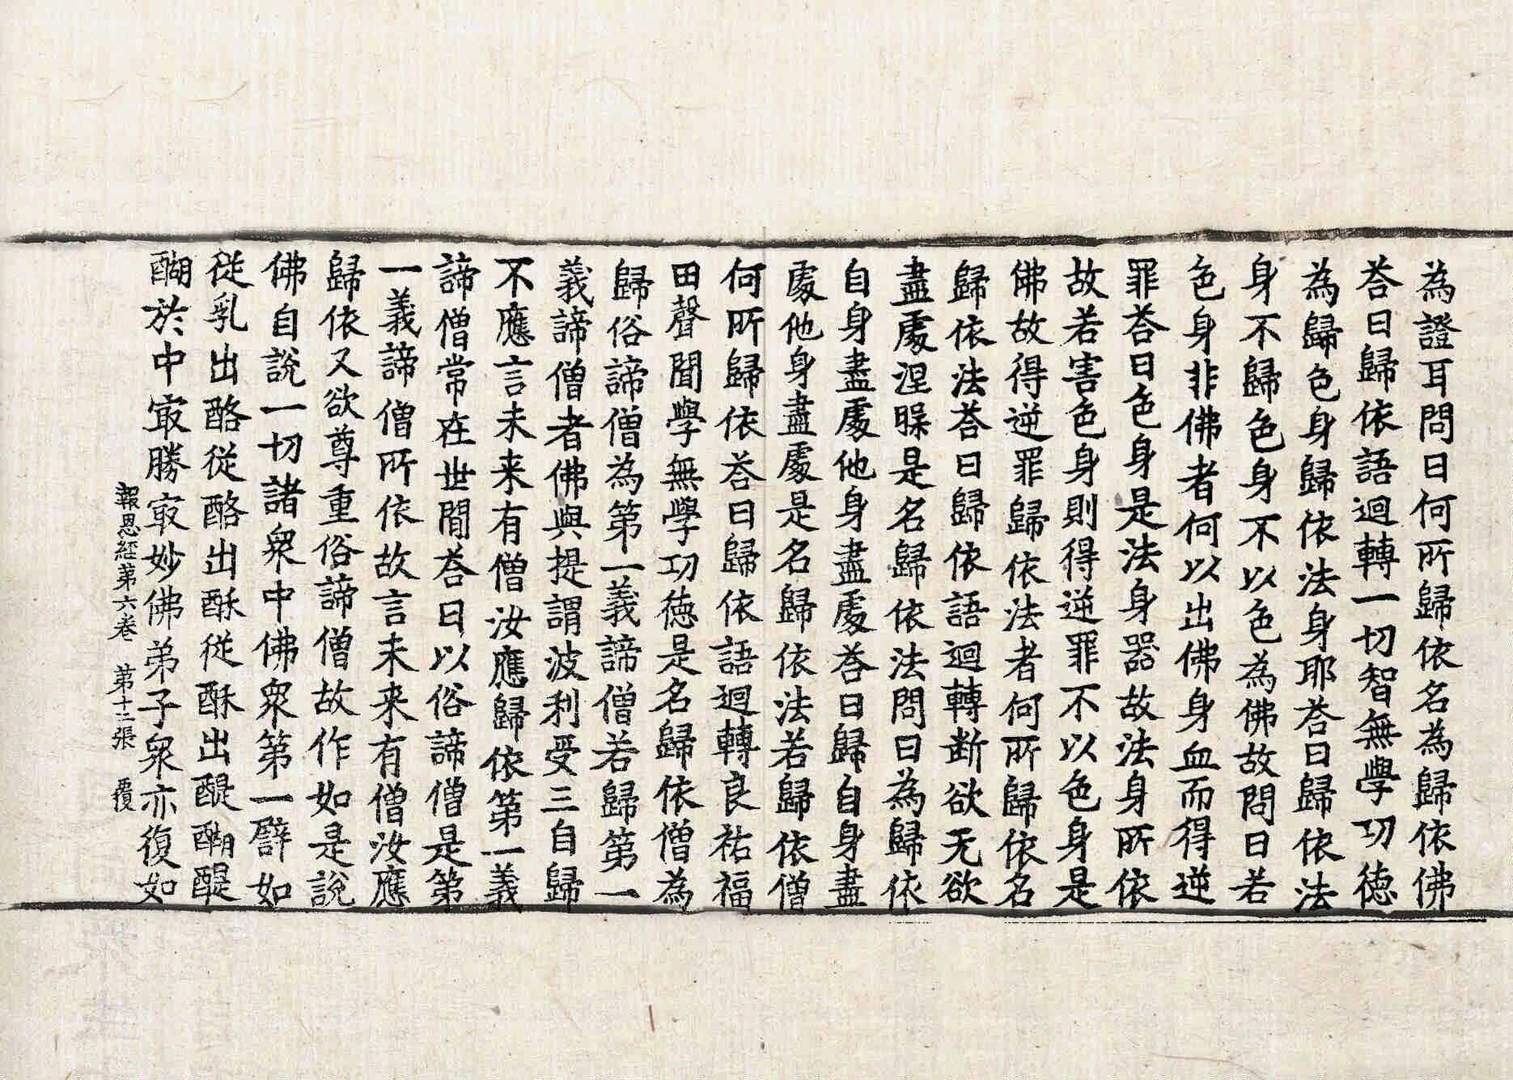 為證耳問曰何所歸依名為歸依佛
荅曰歸依語迴轉一切智無學功徳
為歸色身歸依法身耶荅曰歸依法
身不歸色身不以色為佛故問曰若
色身非佛者何以出佛身血而得逆
罪荅曰色身是法身器故法身所依
故若害色身則得逆罪不以色身是
佛故得逆罪歸依法者何所歸依名
歸依法荅曰歸依語迴轉断欲无欲
盡處涅槃是名歸依法問曰為歸依
自身盡處他身盡處荅曰歸自身盡
處他身盡處是名歸依法若歸依僧
何所歸依荅曰歸依語迴轉良祐福
田聲聞學無學功徳是名歸依僧為
歸俗諦僧為第一義諦僧若歸第一
義諦僧者佛與提謂波利受三自歸
不應言未来有僧汝應歸依第一義
諦僧常在世間荅曰以俗諦僧是第
一義諦僧所依故言未来有僧汝應
歸依又欲尊重俗諦僧故作如是說
佛自說一切諸衆中佛衆第一譬如
従乳出酪従酪出酥従酥出醍醐醍
醐於中㝡勝㝡妙佛弟子衆亦復如
報恩経第六卷　第十二張　覆